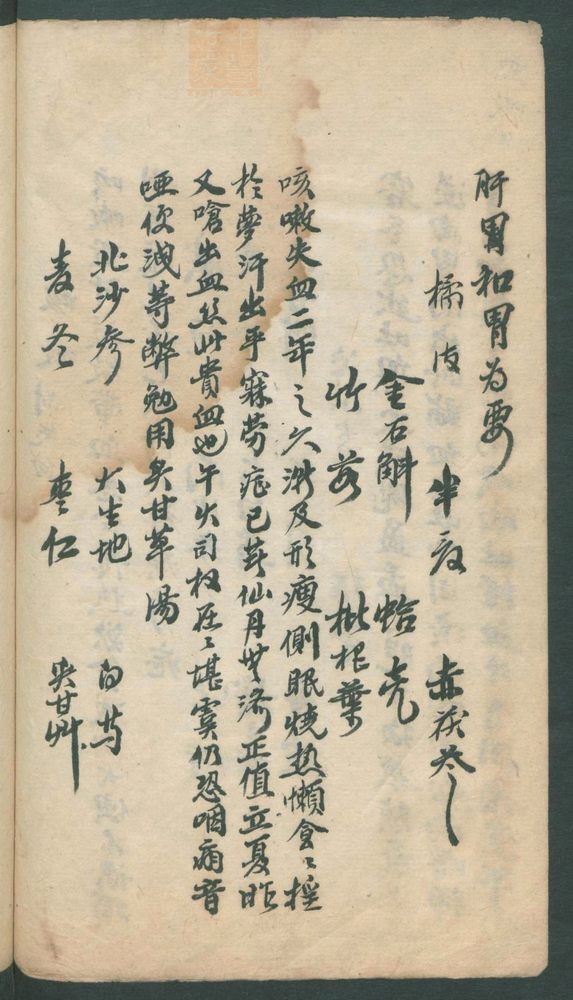 肝胃和胃為要
橘皮 半夏 赤茯苓
金石斛 蛤壳
竹茹 枇杷葉
咳嗽失血二年之久漸及形瘦側眠燒热懶食〻
於夢汗出乎寐劳疟已葬仙丹無济正值立夏昨
又嗆出血丝此貴血也午火司权在〻堪虞仍恐咽痛音
哑便洩等弊勉用炙甘草湯
北沙參 大生地 白芍
麦冬 枣仁 炙甘艸